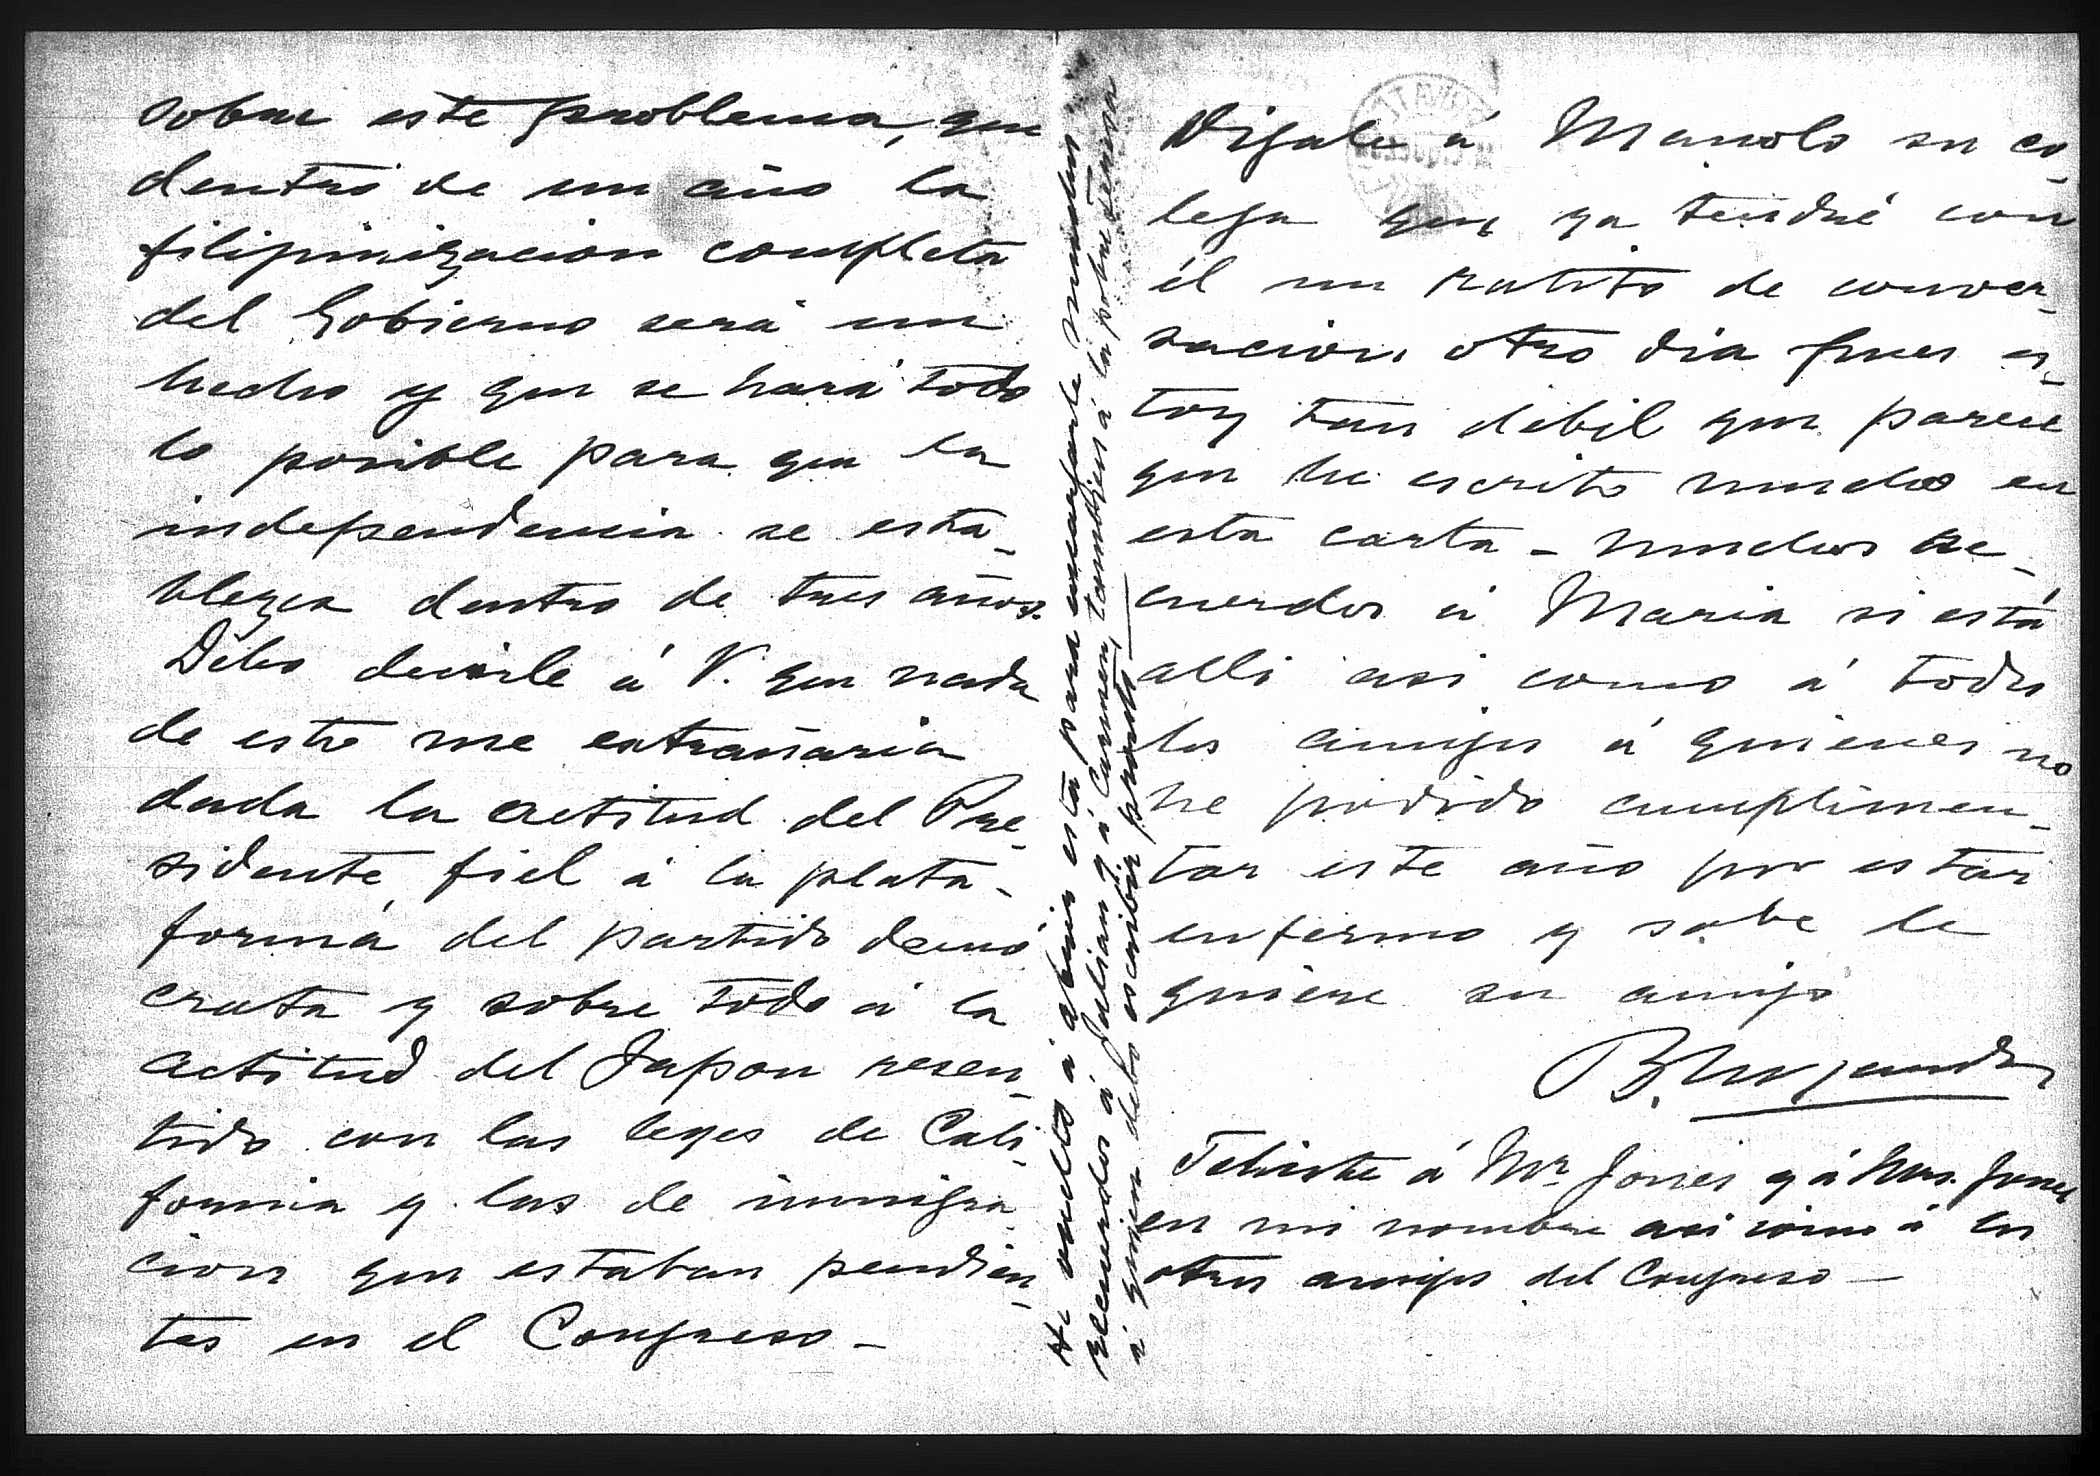 sobre este problema, que
dentro de un año la
filipinizacion completa
del Gobierno será un
hecho y que se hará todo
lo posible para que la
independencia se esta-
blezca dentro de tres años.
Debo decirle á V. que nada
de esto me extrañaria
dada la actitud del Pre-
sidente, fiel á la plata-
forma del partido demó
crata y sobre todo á la
actitud del Japon resen-
tido con las leyes de Cali-
fornia y las de inmigra
cion que estaban pendien-
tes en el Congreso —
He vuelto á abrir esta para encargarle muchos
recuerdos á Julian y á Carmen, tambien á la pobre
á quien debo escribir pronto —
Digale á Manolo su co-
lega que ya tendré con
él un ratito de conver-
sacion otro dia pues es-
toy tan debil que parece
que he escrito mucho en
esta carta — muchos re-
cuerdos á Maria si está
alli asi como á todos
los amigos á quienes no
he podido cumplimen-
tar este año por estar
enfermo y sabe le
quiere su amigo
B.
Felicite á Mr Jones y á Mrs. Jones
en mi nombre asi como á los
otros amigos del Congreso —